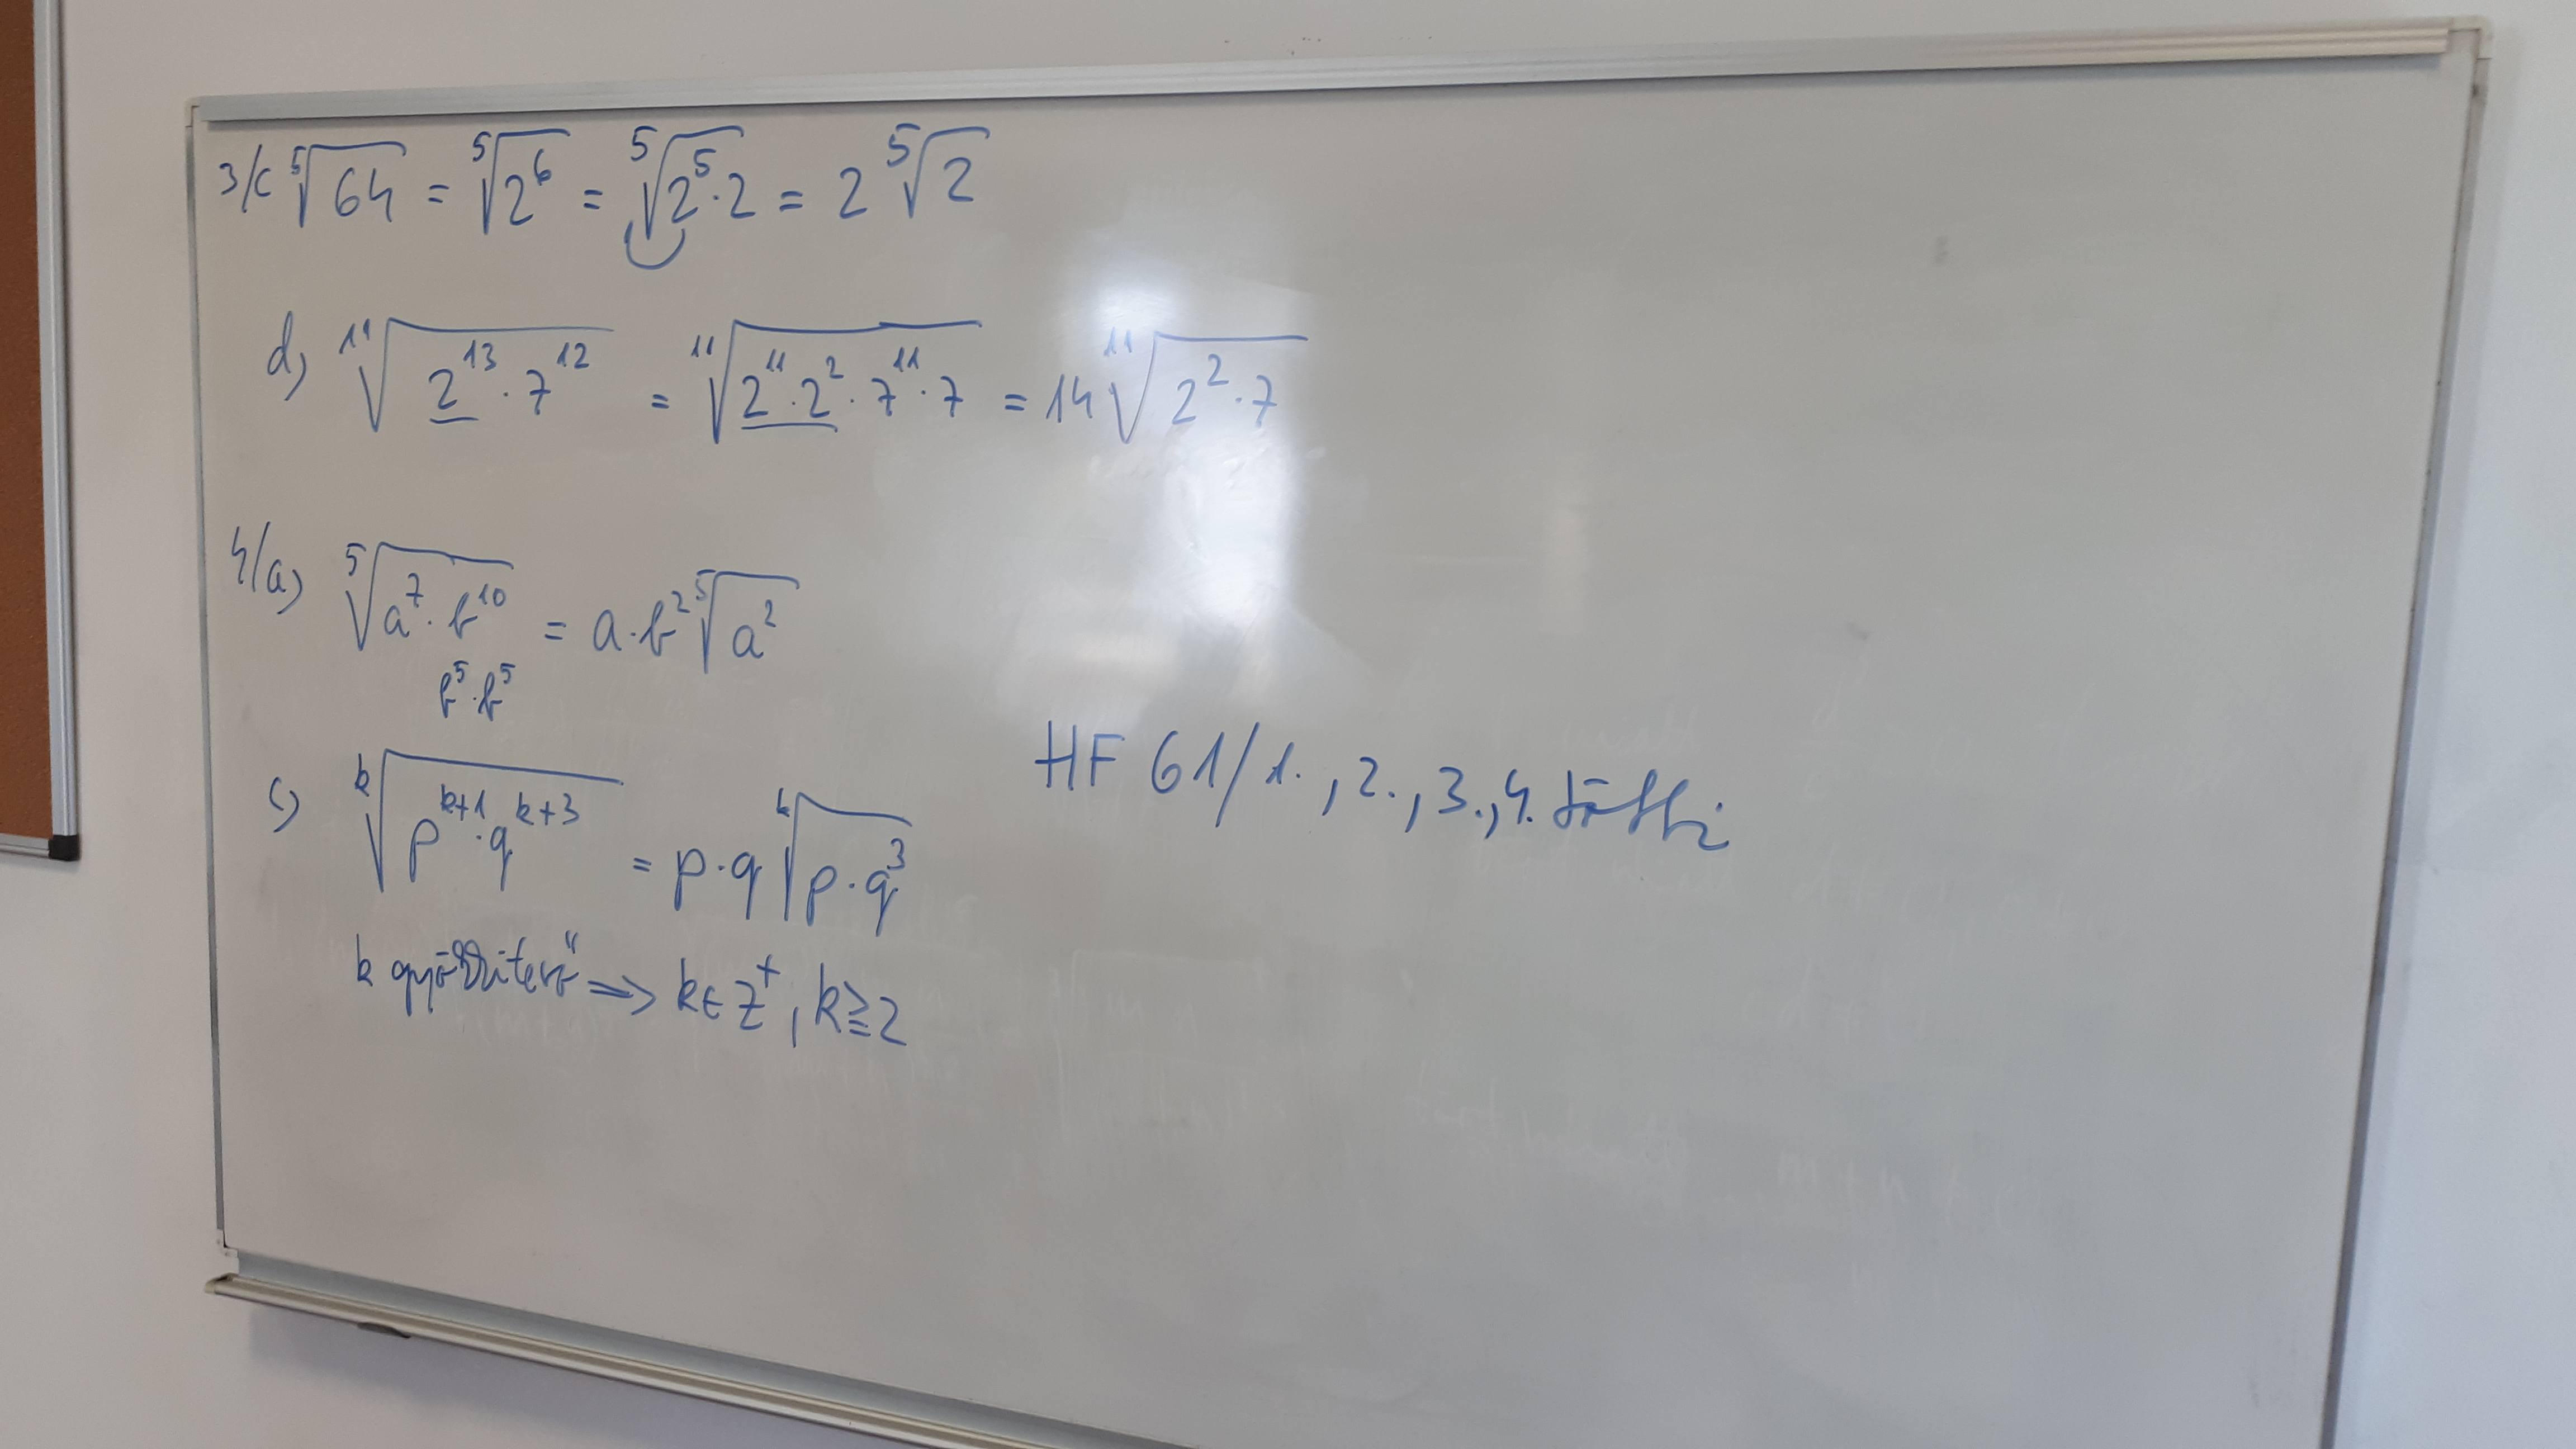 3/c ⁵√64 = ⁵√2⁶ = ⁵√2⁵·2 = 2 ⁵√2
d) ¹¹√2¹³·7¹² = ¹¹√2¹¹·2²·7¹¹·7 = 14 ¹¹√2²·7
4/a) ⁵√a⁷·b¹⁰ = a·b² ⁵√a²
b⁵·b⁵
c) ᵏ√pᵏ⁺¹·qᵏ⁺³ = p·q ᵏ√p·q³
k gyökkitevő => k∈Z⁺, k≧2
HF 61/1.,2.,3.,4. többi